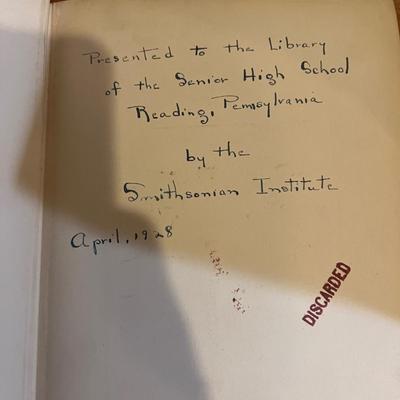 Presented to the Library
of the Senior High School
Reading, Pennsylvania
by the
Smithsonian Institute
April, 1928
DISCARDED